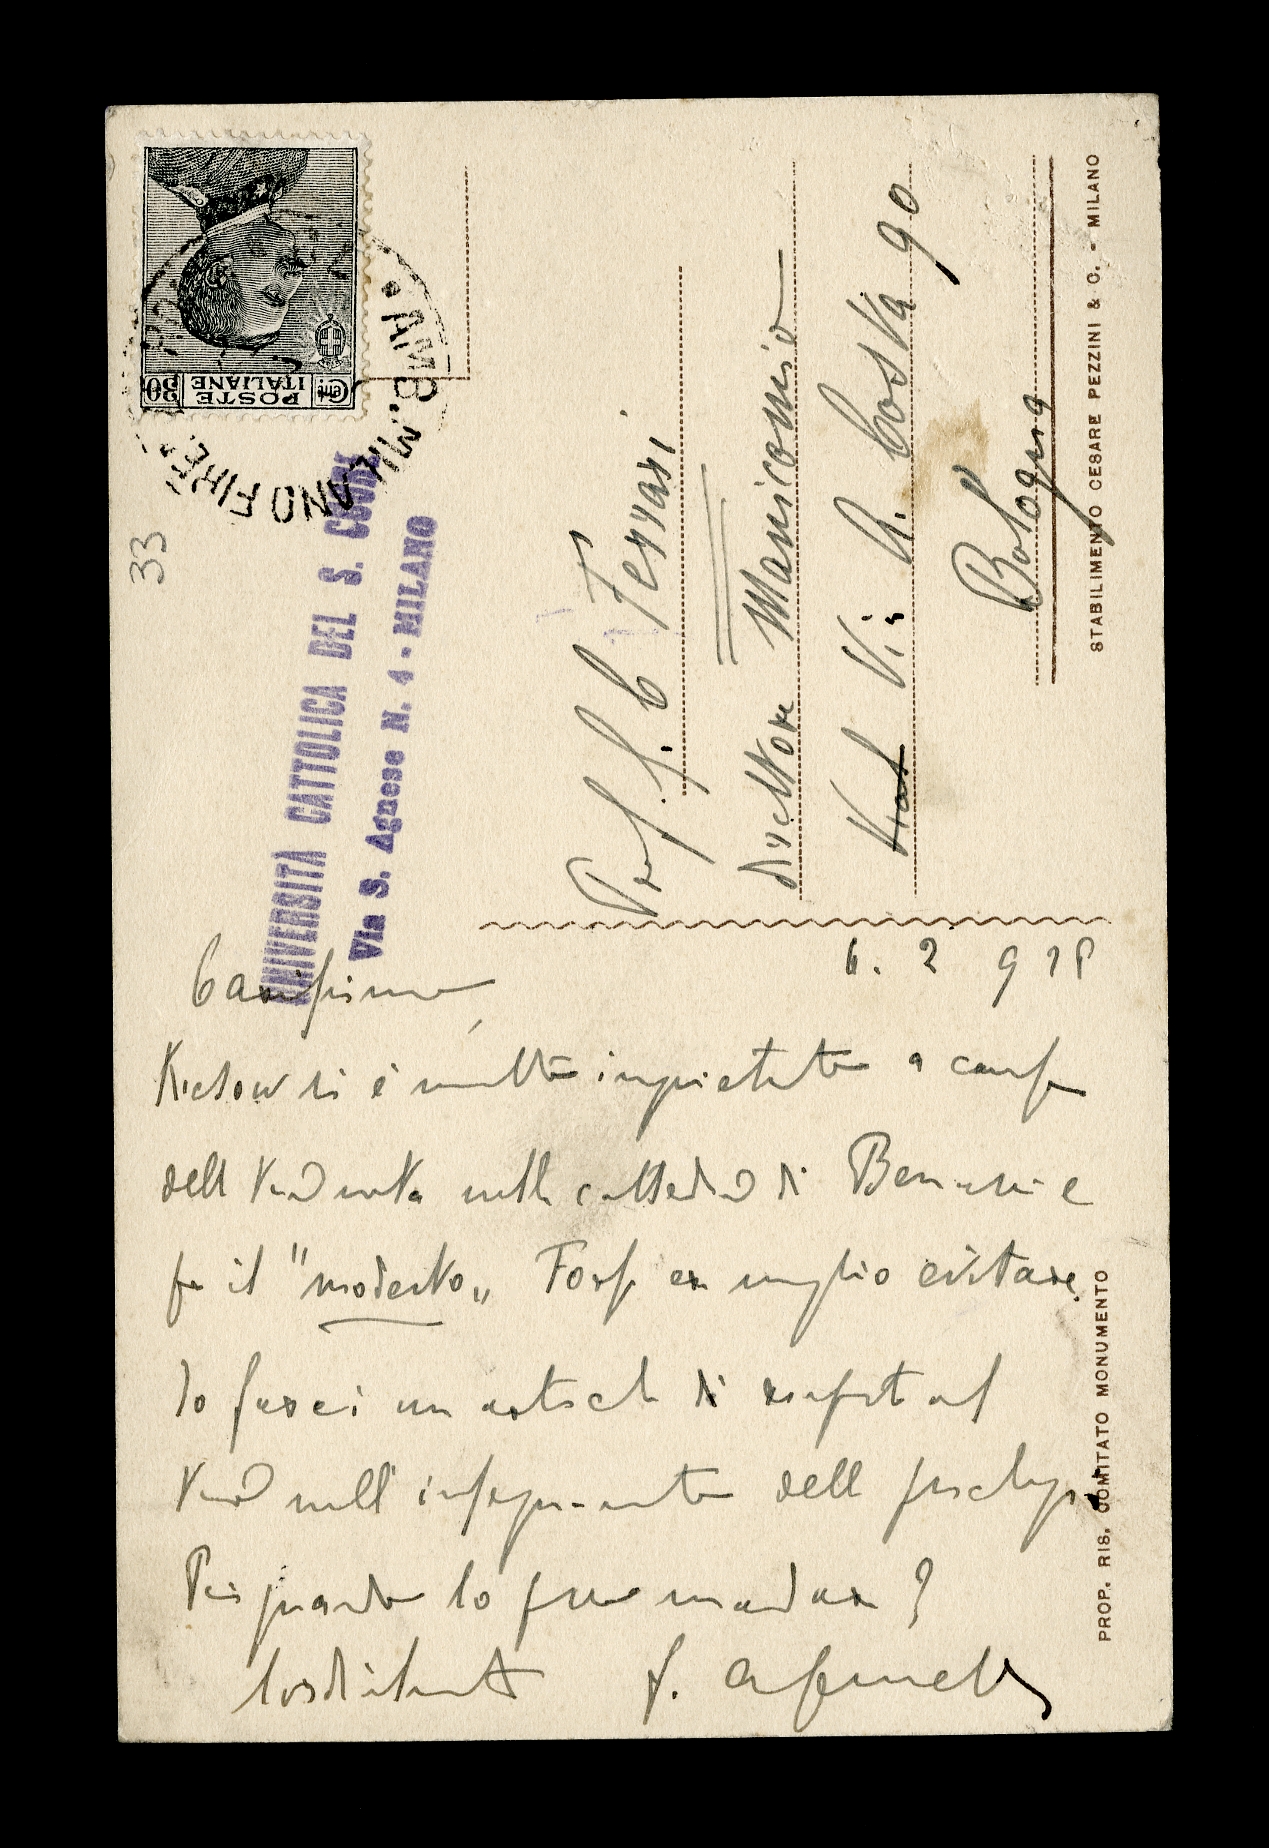 POSTE ITALIANE
Cent. 30
AMB. MILANO FIRE
33
UNIVERSITÀ CATTOLICA DEL S. CUORE
Via S. Agnese N. 4 - MILANO
Prof. G. C Ferrari
direttore Manicomio
Via A. Costa 90
Bologna
STABILIMENTO CESARE PEZZINI & C. - MILANO
PROP. RIS. COMITATO MONUMENTO
6. 2 928
Carissimo,
Kiesow si è molto inquietato a causa
della nella cattedra di Benussi e
fa il "modesto„ Forse era meglio evitare.
Io farei un articolo di
nell'insegnamento della psicologia
Per quando lo posso mandare?
Cordialmente f. A Gemelli